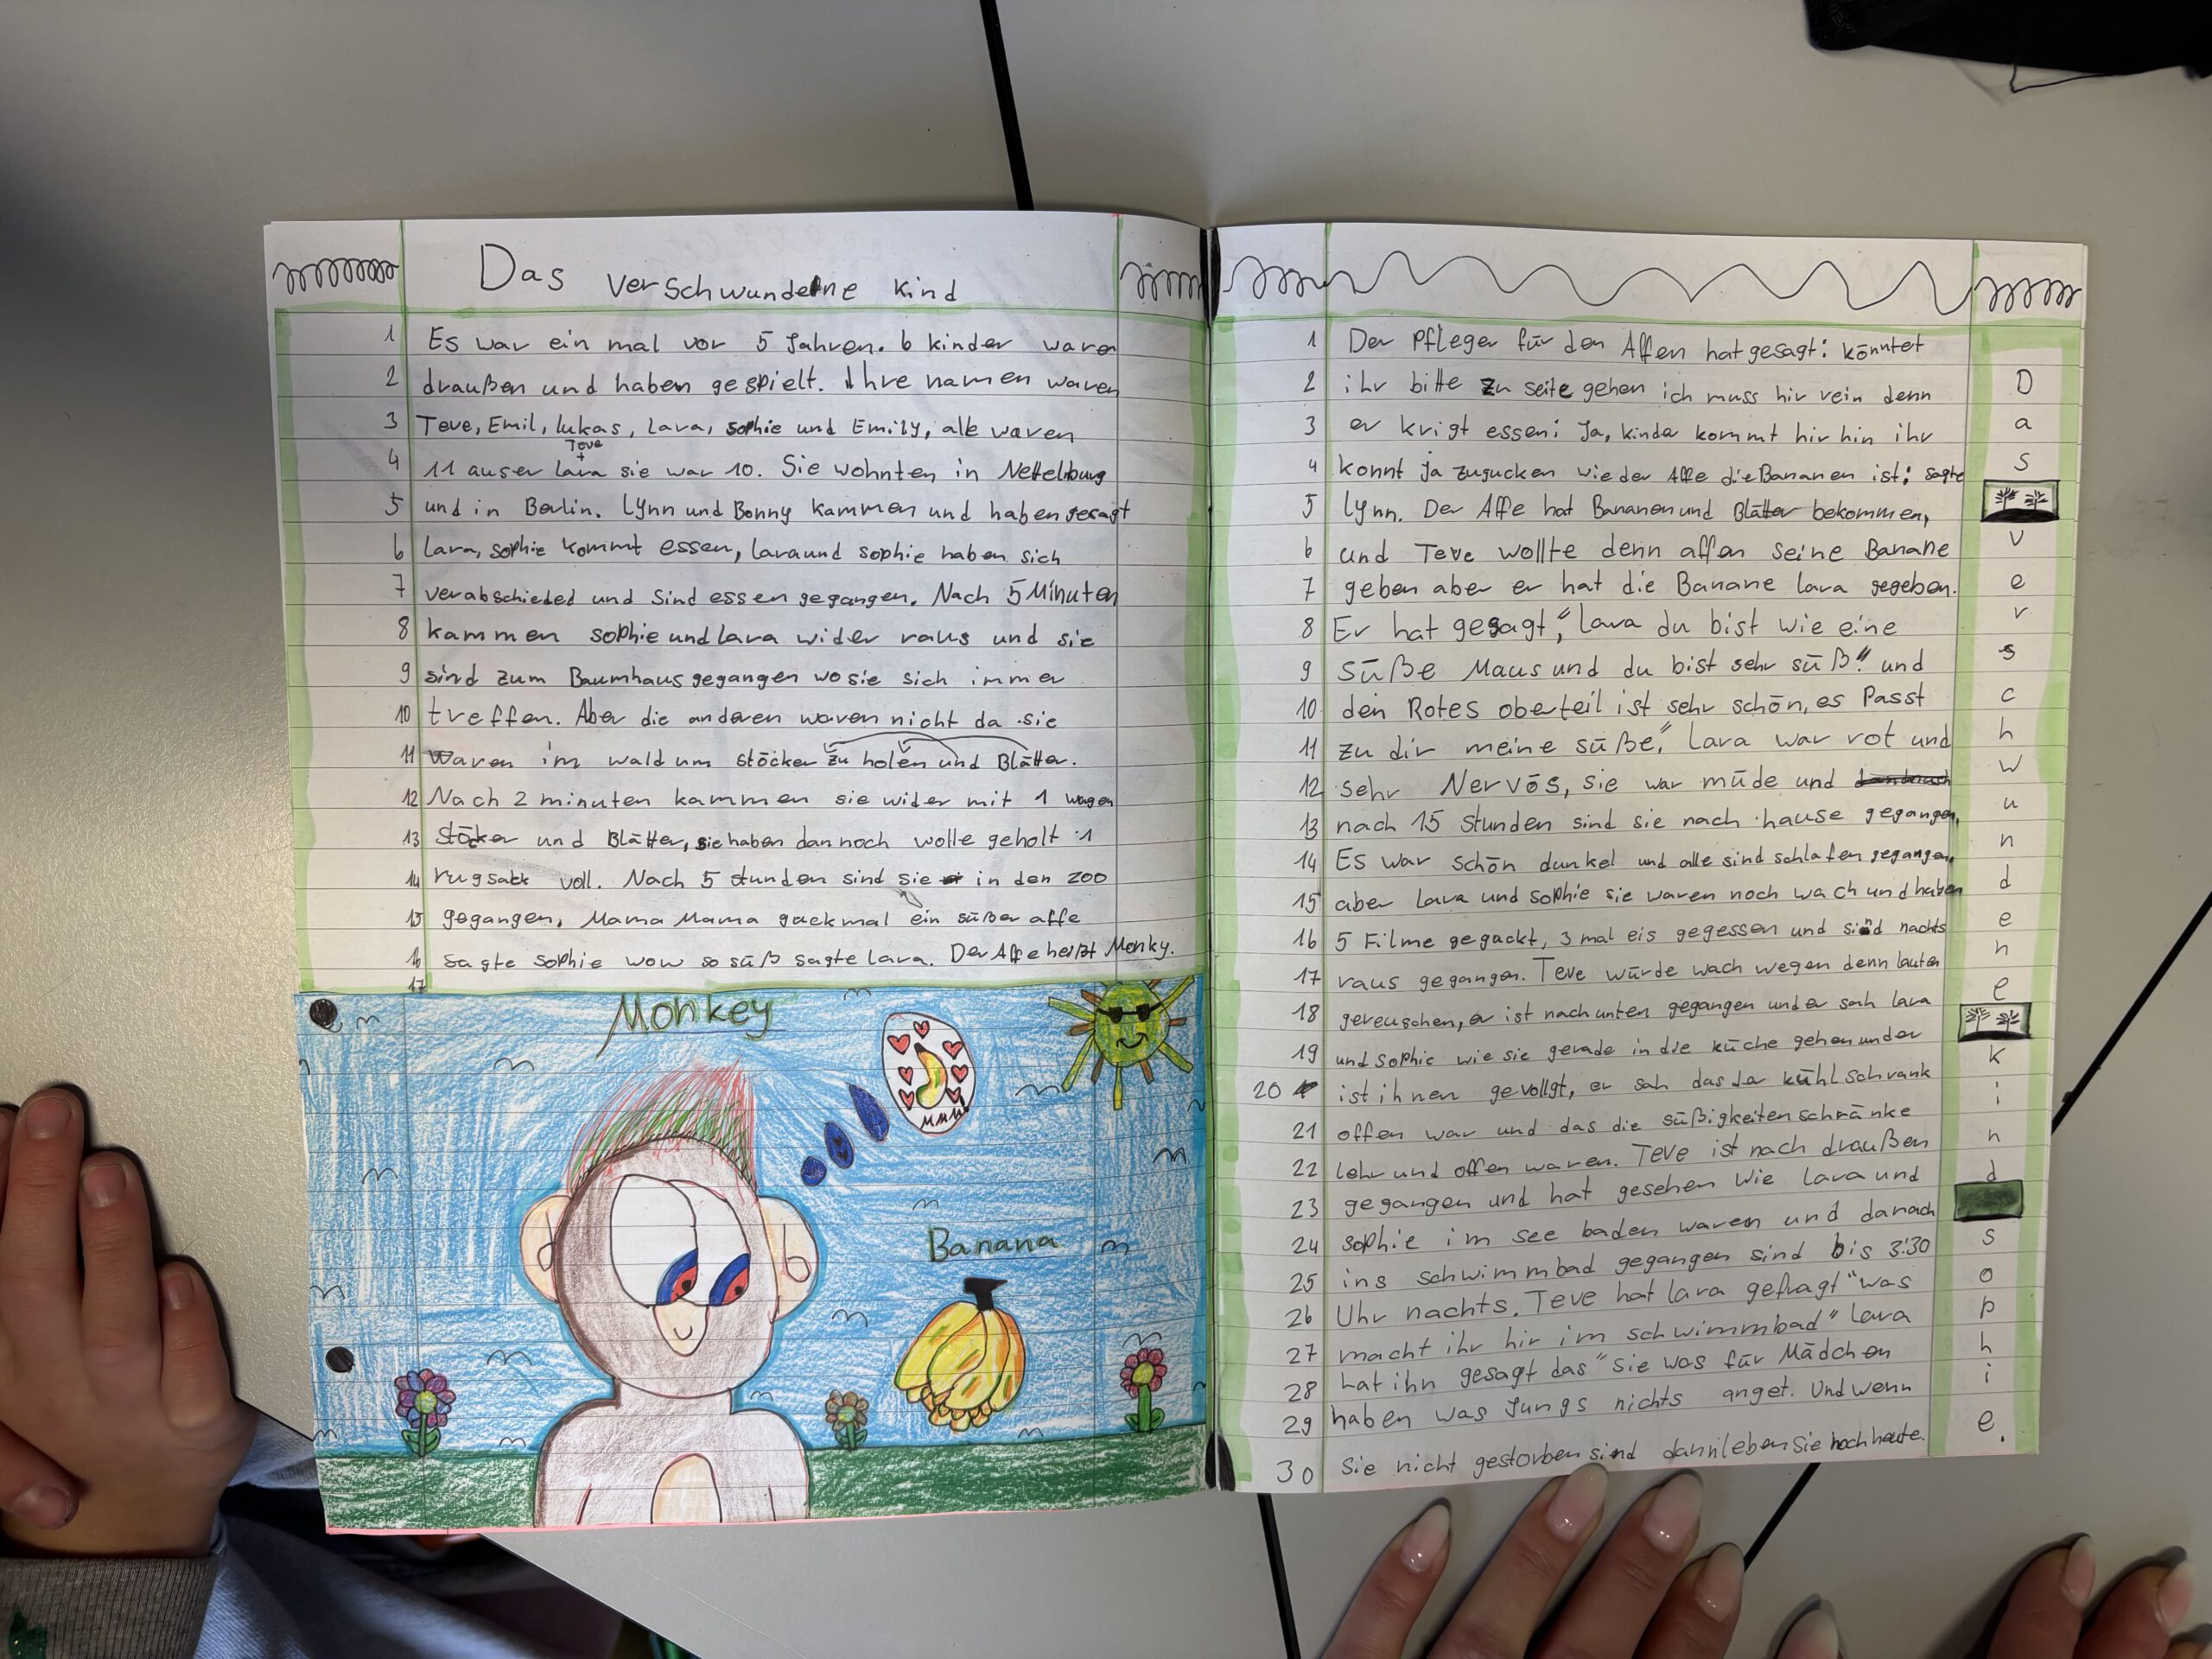 Das verschwundene kind
1 Es war ein mal vor 5 Jahren. 6 kinder waren
2 draußen und haben gespielt. Ihre namen waren
3 Teve, Emil, lukas, Lara, sophie und Emily, alle waren
Teve +
4 11 auser lara sie war 10. Sie wohnten in Nettelnburg
5 und in Berlin. Lynn und Bonny kammen und haben gesagt
6 lara, sophie kommt essen, lara und sophie haben sich
7 verabschieded und sind essen gegangen. Nach 5 Minuten
8 kammen sophie und lara wider raus und sie
9 sind zum Baumhaus gegangen wo sie sich immer
10 treffen. Aber die anderen waren nicht da sie
11 waren im wald um stöcker zu holen und Blätter.
12 Nach 2 minuten kammen sie wider mit 1 wagen
13 stöcker und Blätter, sie haben dan noch wolle geholt 1
14 rugsack voll. Nach 5 stunden sind sie in den zoo
15 gegangen, Mama Mama guckmal ein süßer affe
16 sagte sophie wow so süß sagte lara. Der Affe heißt Monky.
17
Monkey
MMM
Banana
1 Der Pfleger für den Affen hat gesagt: könntet
2 ihr bitte zu seite gehen ich muss hir rein denn
3 er krigt essen: Ja, kinder kommt hir hin ihr
4 konnt ja zugucken wie der Affe die Bananen ist: sagte
5 lynn. Der Affe hat Bananen und Blätter bekommen,
6 und Teve wollte denn affen seine Banane
7 geben aber er hat die Banane lara gegeben.
8 Er hat gesagt, "Lara du bist wie eine
9 süße Maus und du bist sehr süß!" und
10 dein Rotes oberteil ist sehr schön, es Passt
11 zu dir meine süße." Lara war rot und
12 sehr Nervös, sie war müde und
13 nach 15 stunden sind sie nach hause gegangen,
14 Es war schön dunkel und alle sind schlafen gegangen,
15 aber Lara und sophie sie waren noch wach und haben
16 5 Filme geguckt, 3 mal eis gegessen und sind nachts
17 raus gegangen. Teve würde wach wegen denn lauten
18 gereuschen, er ist nach unten gegangen und er sah lara
19 und sophie wie sie gerade in die küche gehen und er
20 ist ihnen gevollgt, er sah das der kühlschrank
21 offen war und das die süßigkeitenschränke
22 lehr und offen waren. Teve ist nach draußen
23 gegangen und hat gesehen wie lara und
24 sophie im see baden waren und danach
25 ins schwimmbad gegangen sind bis 3:30
26 Uhr nachts. Teve hat lara gefragt "was
27 macht ihr hir im schwimmbad" Lara
28 hat ihn gesagt das "sie was für Mädchen
29 haben was Jungs nichts anget. Und wenn
30 Sie nicht gestorben sind dann leben Sie noch heute.
D
a
s
v
e
r
s
c
h
w
u
n
d
e
n
e
k
i
n
d
s
o
p
h
i
e.